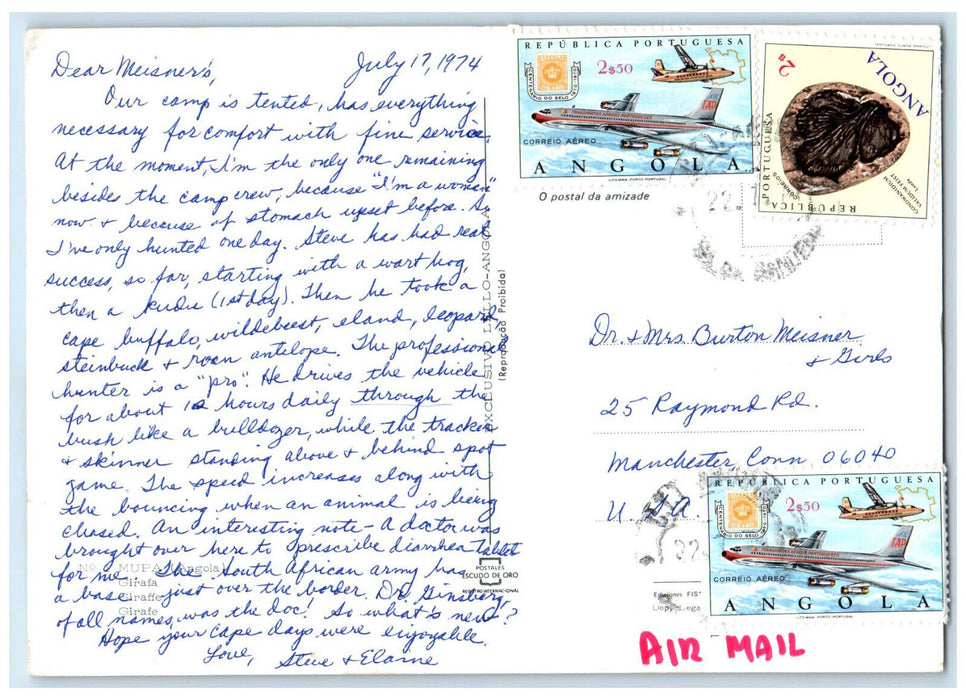 Dear Meisner's, July 17, 1974
Our camp is tented, has everything
necessary for comfort with fine service.
At the moment, I'm the only one remaining
besides the camp crew, because "I'm a woman"
now & because of stomach upset before. So
I've only hunted one day. Steve has had real
success, so far, starting with a wart hog,
then a kudu (1st day). Then he took a
cape buffalo, wildebeest, eland, leopard,
steinbuck & roan antelope. The professional
hunter is a "pro". He drives the vehicle
for about 12 hours daily through the
bush like a bulldozer, while the tracker
& skinner standing above & behind spot
game. The speed increases along with
the bouncing when an animal is being
chased. An interesting note - A doctor was
brought over here to prescribe diarrhea tablet
for me. The South African army has
a base just over the border. Dr. Ginsberg
of all names, was the doc! So what's new?
Hope your cape days were enjoyable.
Love,
Steve & Elaine
Nº
MUPA (Angola)
Girafa
Giraffe
Girafe
EXCLUSIVO LELLO-ANGOLA
(Reprodução Proibida)
POSTALES
ESCUDO DE ORO
REGISTRO INTERNACIONAL
REPÚBLICA PORTUGUESA
CENTENÁRIO DO SELO
2$50
TRANSPORTES AÉREOS PORTUGUESES
TAP
CORREIO AÉREO
ANGOLA
LITO MAIA PORTO PORTUGAL
2$
ANGOLA
REPÚBLICA PORTUGUESA
CORREIOS
O postal da amizade
22
Dr. & Mrs. Burton Meisner
& Girls
25 Raymond Rd.
Manchester Conn 06040
U.S.A.
REPÚBLICA PORTUGUESA
CENTENÁRIO DO SELO
2$50
TRANSPORTES AÉREOS PORTUGUESES
TAP
CORREIO AÉREO
ANGOLA
LITO MAIA PORTO PORTUGAL
22
Ediciones FIS
AIR MAIL